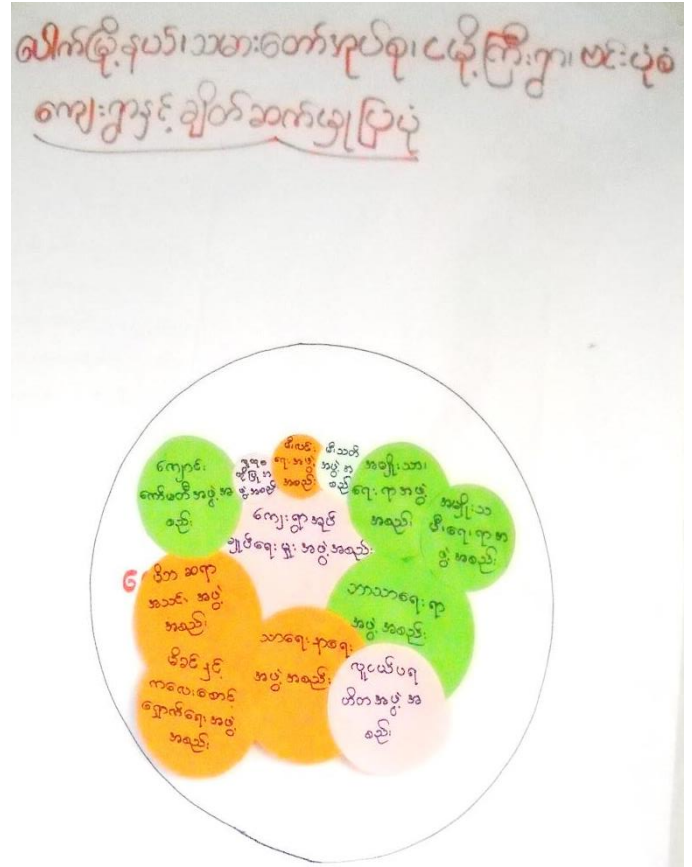 ပေါက်မြို့နယ်၊သမားတော်အုပ်စု၊ငယို့ကြီးရွာ၊ဗင်းပုံစံ
ကျေးရွာနှင့်ချိတ်ဆက်မှုပြပုံ
ကျောင်း
ကော်မတီအဖွဲ့အ
စည်း
မီးလင်း
ရေးအဖွဲ့
အစည်း
မီးသတိ
အဖွဲ့အ
စည်း
အမျိုးသား
ရေးရာအဖွဲ့
အစည်း
အမျိုးသ
မီးရေးရာအ
ဖွဲ့အစည်း
ကျေးရွာအုပ်
ချုပ်ရေးမှူးအဖွဲ့အစည်း
မိဘဆရာ
အသင်းအဖွဲ့
အစည်း
ဘာသာရေးရာ
အဖွဲ့အစည်း
သာရေးနာရေး
အဖွဲ့အစည်း
လူငယ်ပရ
ဟိတအဖွဲ့အ
စည်း
မိခင်နှင့်
ကလေးစောင့်
ရှောက်ရေးအဖွဲ့
အစည်း